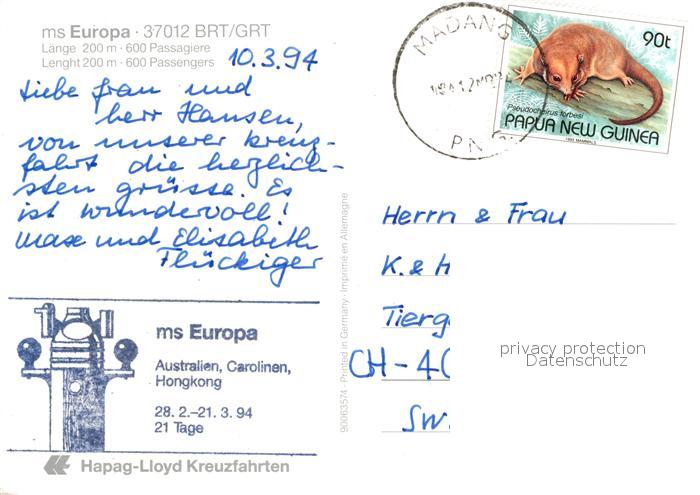 ms Europa · 37012 BRT/GRT
Länge 200 m · 600 Passagiere
Lenght 200 m · 600 Passengers
10.3.94
Liebe Frau und
Herr Hansen,
von unserer Kreuz-
fahrt die herzlich-
sten Grüsse. Es
ist wundervoll!
Max und Elisabeth
Flückiger
ms Europa
Australien, Carolinen,
Hongkong
28. 2.–21. 3. 94
21 Tage
Hapag-Lloyd Kreuzfahrten
90063574 · Printed in Germany · Imprimé en Allemagne
MADANG
PNG
90t
Pseudocheirus forbesi
PAPUA NEW GUINEA
1993 MAMMALS
Herrn & Frau
K. & H
Tierg
CH-40
Sw.
privacy protection
Datenschutz